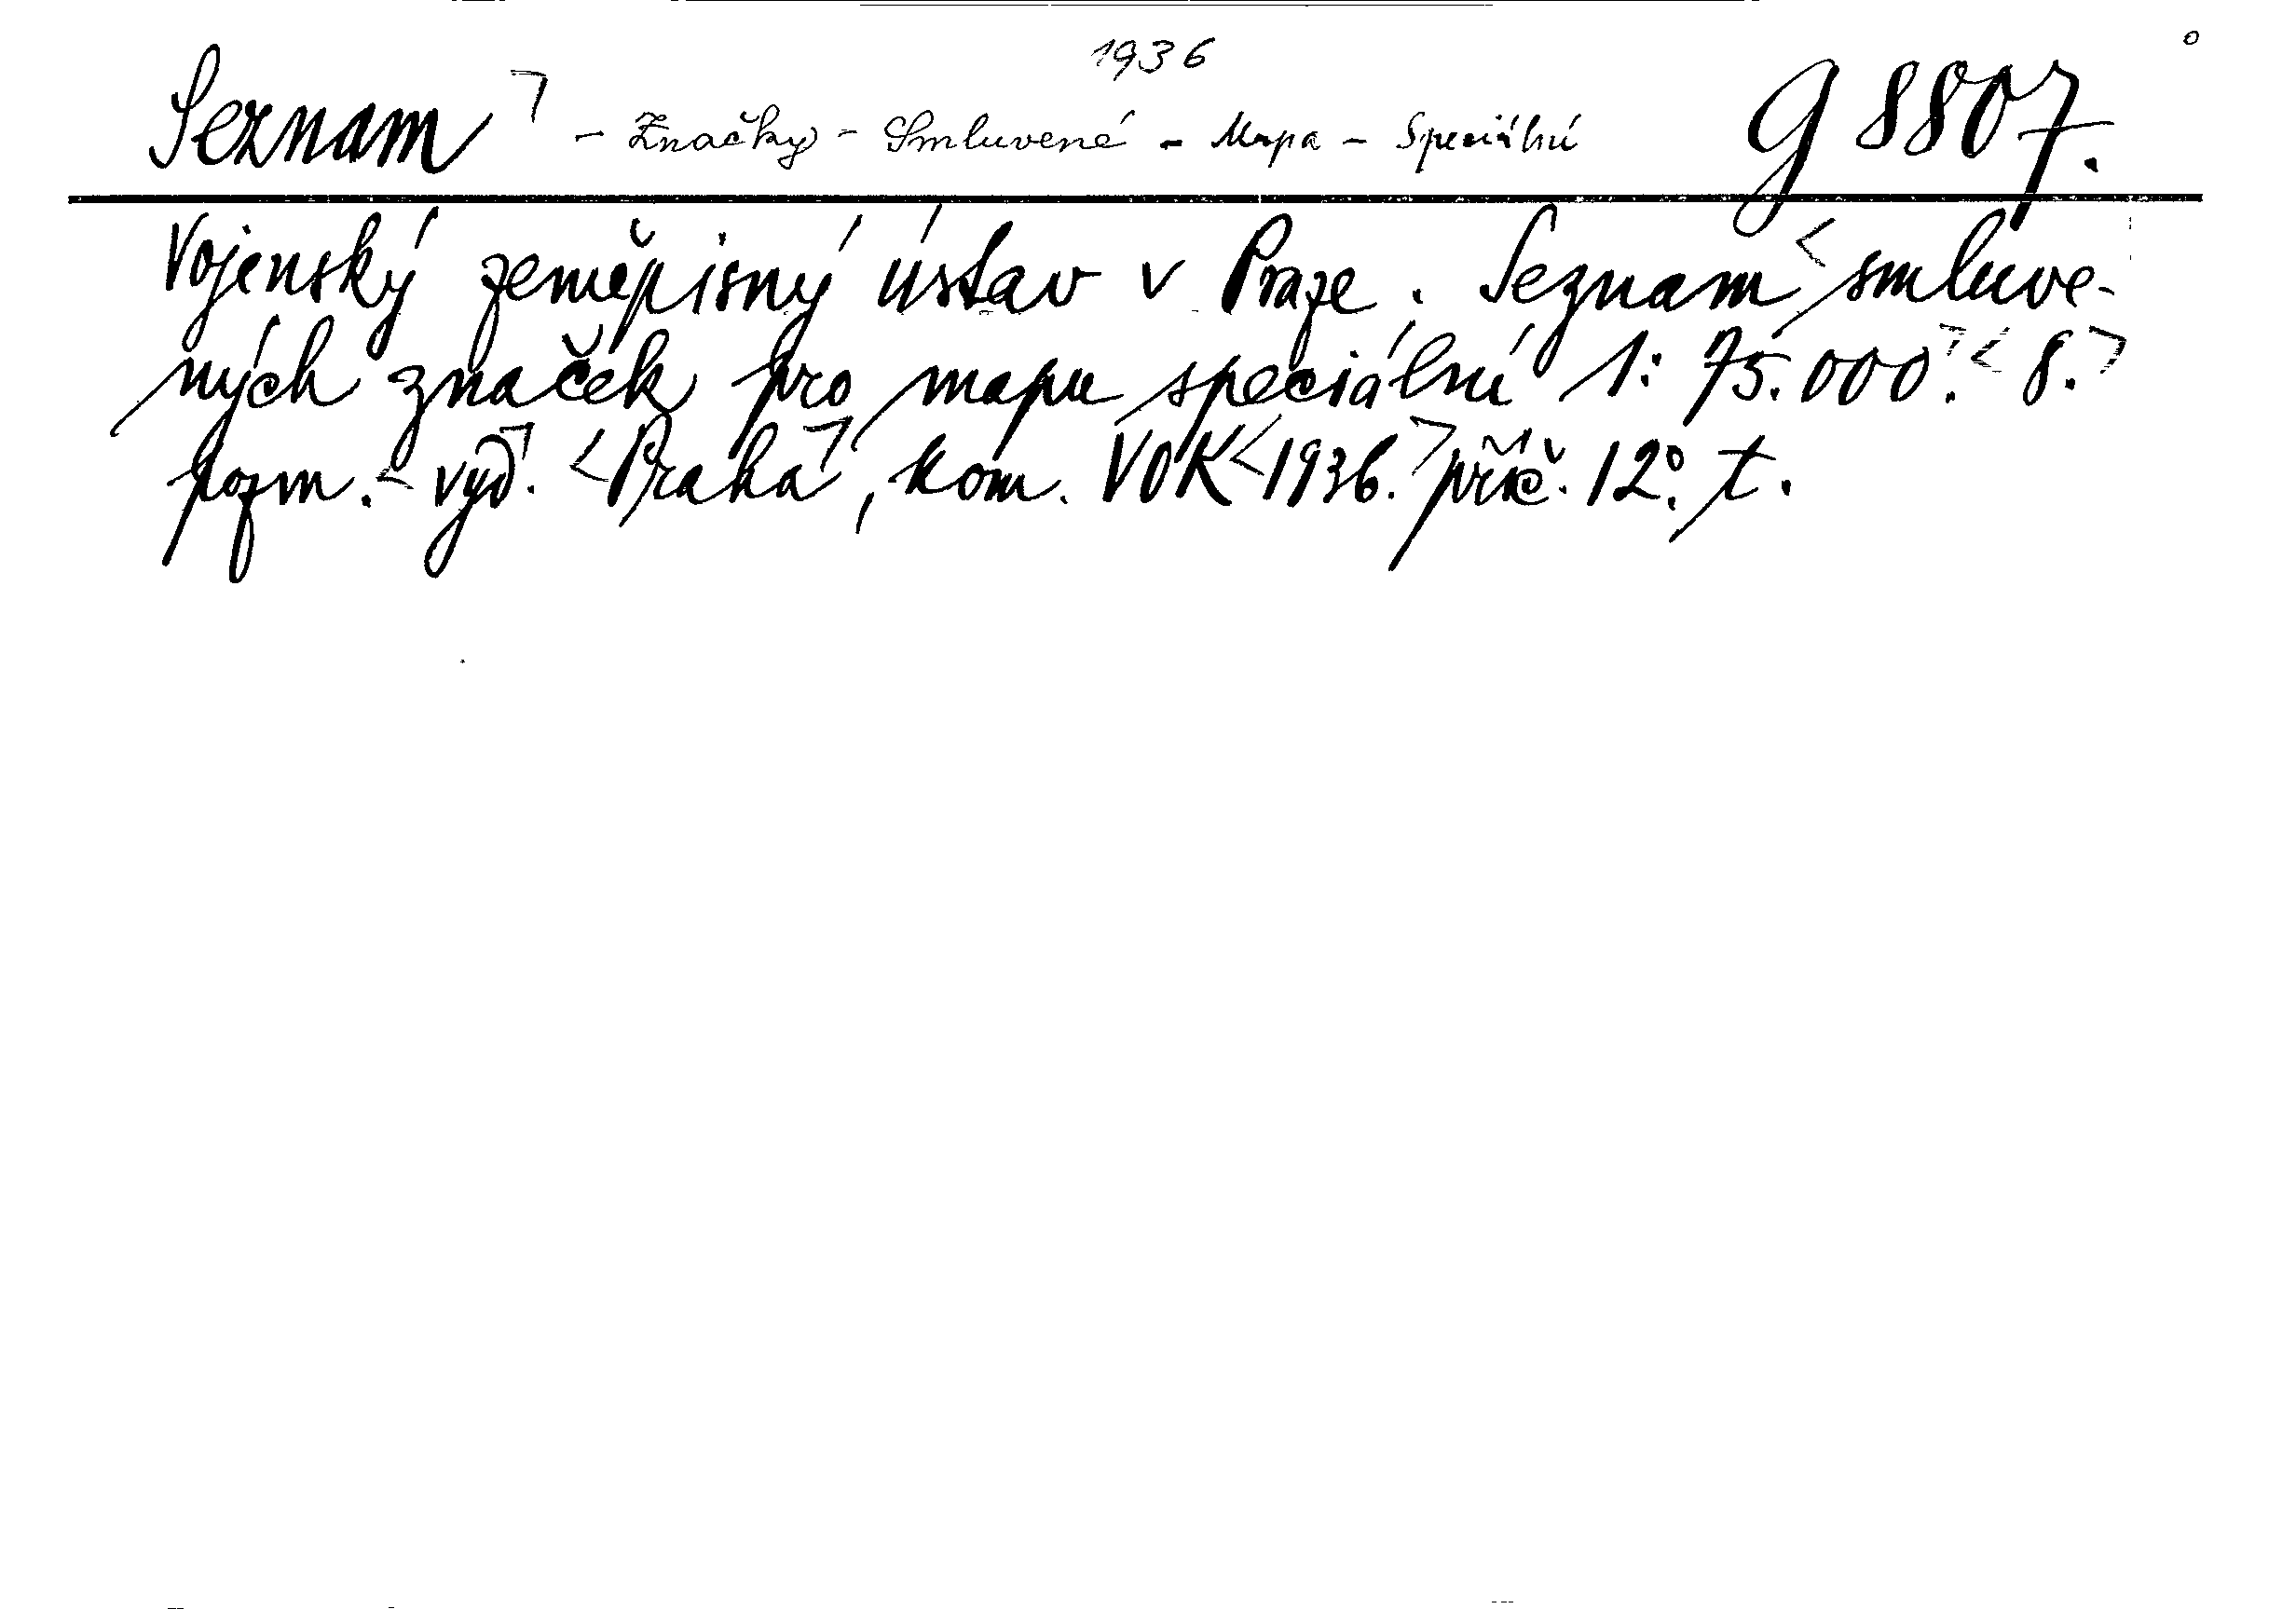 1936
Seznam - Značky - Smluvené - Mapa - Speciální G 8807.
Vojenský zeměpisný ústav v Praze. Seznam smluve-
ných značek pro mapu speciální 1:75.000. 8.
pozm. vyd. Praha, kom. VOK 1936. příč. 12°. t.